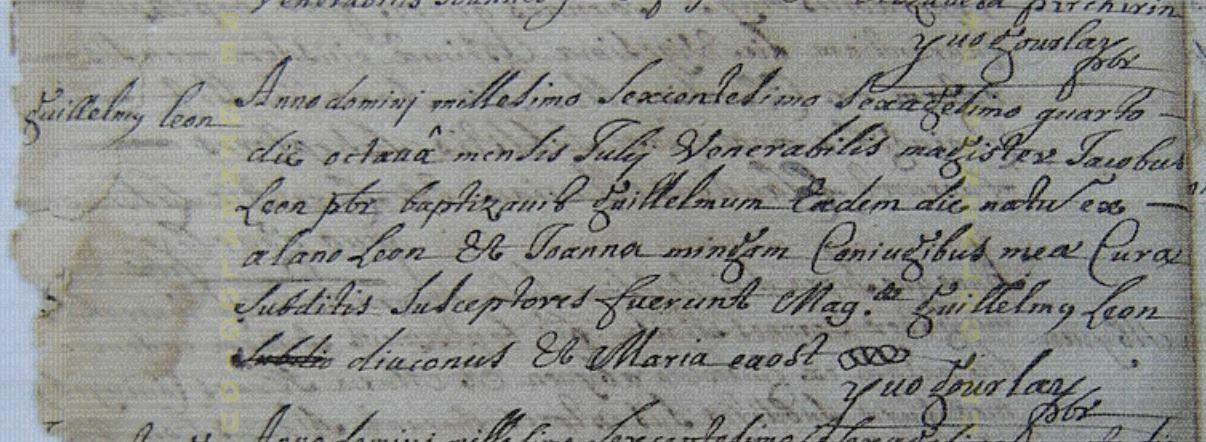 Yuo Gourlay
pbr
Guillelmus leon
Anno domini millesimo sexcentesimo sexagesimo quarto
die octauâ mensis Julij Venerabilis magister Jacobus
Leon pbr baptizauit guillelmum Eadem die natu ex
alano Leon Et Joanna mingam Coniugibus mea Cura
Subditis Susceptores fuerunt Mag. guillelmus Leon
diaconus Et Maria eaost
Yuo Gourlay
pbr
Anno domini millesimo